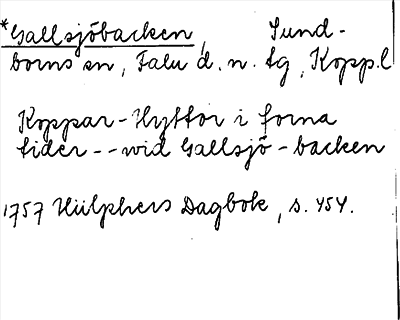 *Gallsjöbacken, Sund-
borns sn, Falu d. n. tg, Kopp.l
Koppar-Hyttor i forna
tider -- wid Gallsjö-backen
1757 Hülphers Dagbok, s. 454.